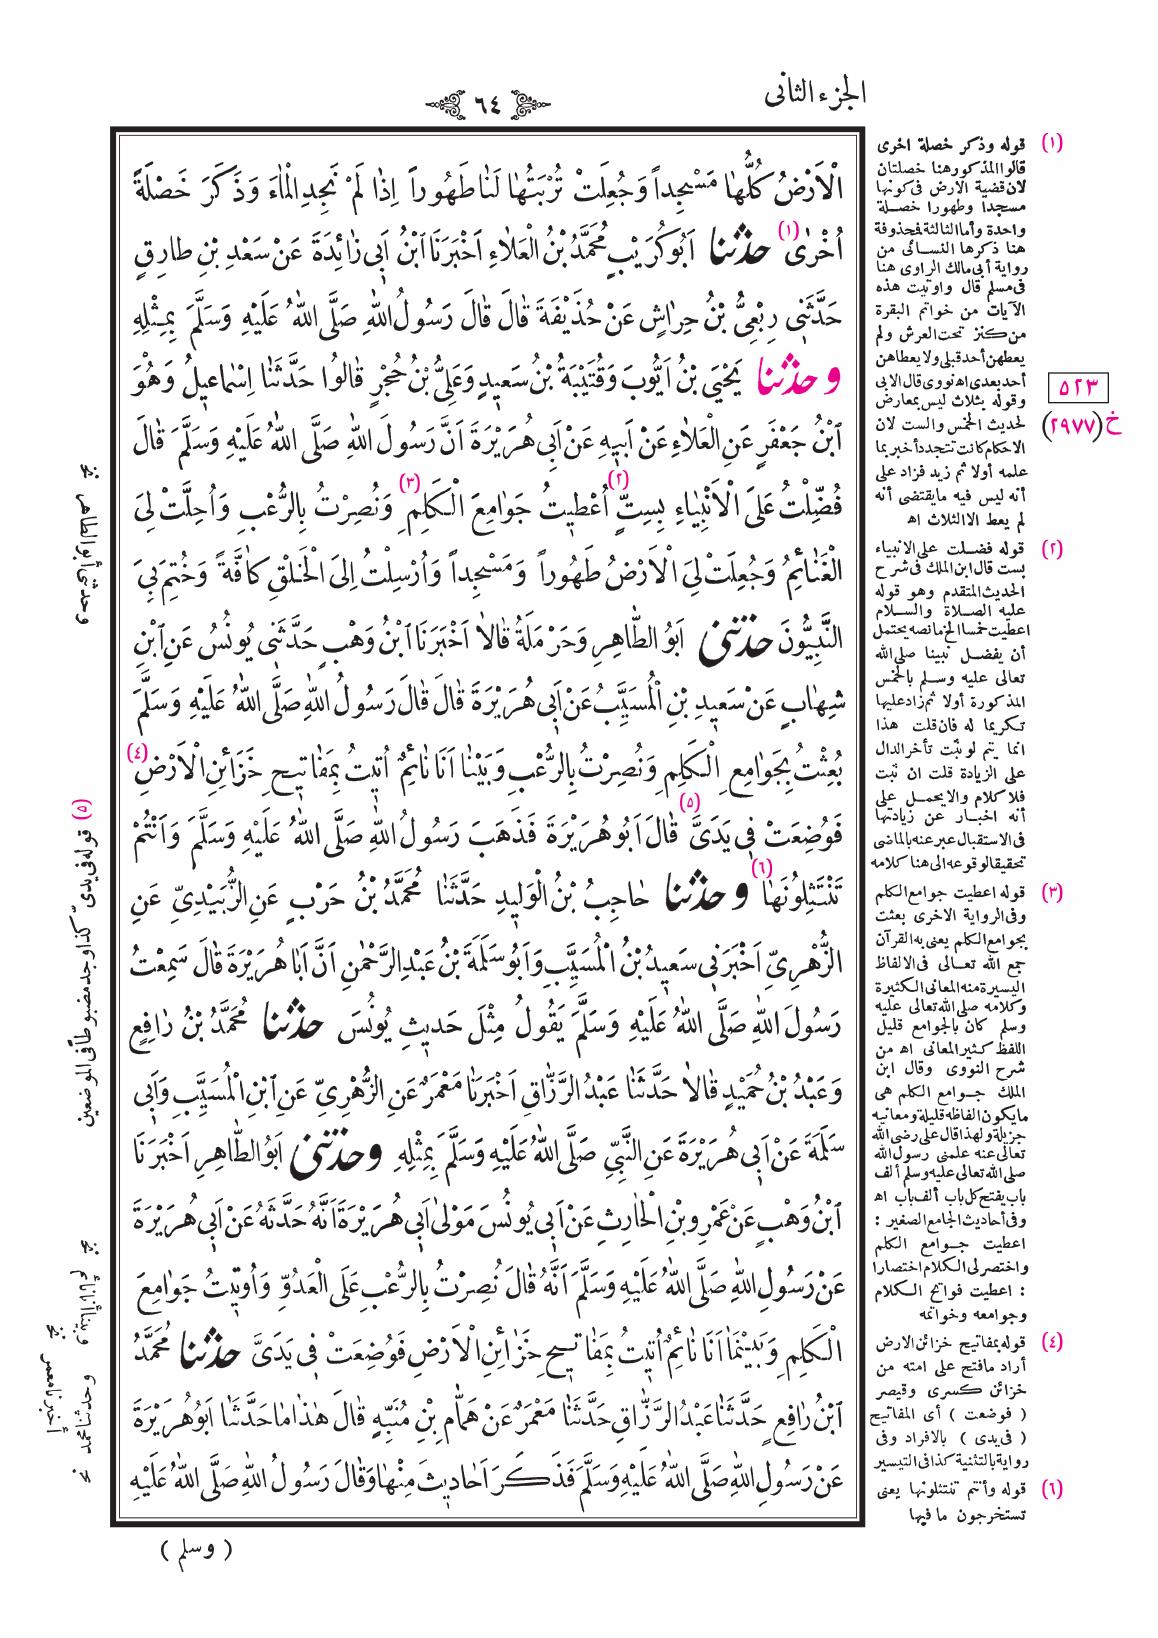 الجزء الثانى
٦٤
الْاَرْضُ كُلُّهٰا مَسْجِداً وَجُعِلَتْ تُرْبَتُهٰا لَنٰا طَهُوراً اِذٰا لَمْ نَجِدِ الْمٰاءَ وَذَكَرَ خَصْلَةً
اُخْرٰى (١) حدثنا اَبُو كُرَيْبٍ مُحَمَّدُ بْنُ الْعَلٰاءِ اَخْبَرَنَا ابْنُ اَبِى زٰائِدَةَ عَنْ سَعْدِ بْنِ طٰارِقٍ
حَدَّثَنِى رِبْعِىُّ بْنُ حِرٰاشٍ عَنْ حُذَيْفَةَ قٰالَ قٰالَ رَسُولُ اللّٰهِ صَلَّى اللّٰهُ عَلَيْهِ وَسَلَّمَ بِمِثْلِهِ
وحدثنا يَحْيَى بْنُ اَيُّوبَ وَقُتَيْبَةُ بْنُ سَعِيدٍ وَعَلِىُّ بْنُ حُجْرٍ قٰالُوا حَدَّثَنٰا اِسْمٰاعِيلُ وَهُوَ
ابْنُ جَعْفَرٍ عَنِ الْعَلٰاءِ عَنْ اَبِيهِ عَنْ اَبِى هُرَيْرَةَ اَنَّ رَسُولَ اللّٰهِ صَلَّى اللّٰهُ عَلَيْهِ وَسَلَّمَ قٰالَ
فُضِّلْتُ عَلَى الْاَنْبِيٰاءِ بِسِتٍّ (٢) اُعْطِيتُ جَوٰامِعَ الْكَلِمِ (٣) وَنُصِرْتُ بِالرُّعْبِ وَاُحِلَّتْ لِىَ
الْغَنٰائِمُ وَجُعِلَتْ لِىَ الْاَرْضُ طَهُوراً وَمَسْجِداً وَاُرْسِلْتُ اِلَى الْخَلْقِ كٰافَّةً وَخُتِمَ بِىَ
النَّبِيُّونَ حدثنى اَبُو الطّٰاهِرِ وَحَرْمَلَةُ قٰالاٰ اَخْبَرَنَا ابْنُ وَهْبٍ حَدَّثَنِى يُونُسُ عَنِ ابْنِ
شِهٰابٍ عَنْ سَعِيدِ بْنِ الْمُسَيَّبِ عَنْ اَبِى هُرَيْرَةَ قٰالَ قٰالَ رَسُولُ اللّٰهِ صَلَّى اللّٰهُ عَلَيْهِ وَسَلَّمَ
بُعِثْتُ بِجَوٰامِعِ الْكَلِمِ وَنُصِرْتُ بِالرُّعْبِ وَبَيْنٰا اَنَا نٰائِمٌ اُتِيتُ بِمَفٰاتِيحِ خَزٰائِنِ الْاَرْضِ (٤)
فَوُضِعَتْ فِى يَدَىَّ (٥) قٰالَ اَبُو هُرَيْرَةَ فَذَهَبَ رَسُولُ اللّٰهِ صَلَّى اللّٰهُ عَلَيْهِ وَسَلَّمَ وَاَنْتُمْ
تَنْتَثِلُونَهٰا (٦) وحدثنا حٰاجِبُ بْنُ الْوَلِيدِ حَدَّثَنٰا مُحَمَّدُ بْنُ حَرْبٍ عَنِ الزُّبَيْدِىِّ عَنِ
الزُّهْرِىِّ اَخْبَرَنِى سَعِيدُ بْنُ الْمُسَيَّبِ وَاَبُو سَلَمَةَ بْنُ عَبْدِ الرَّحْمٰنِ اَنَّ اَبٰا هُرَيْرَةَ قٰالَ سَمِعْتُ
رَسُولَ اللّٰهِ صَلَّى اللّٰهُ عَلَيْهِ وَسَلَّمَ يَقُولُ مِثْلَ حَدِيثِ يُونُسَ حدثنا مُحَمَّدُ بْنُ رٰافِعٍ
وَعَبْدُ بْنُ حُمَيْدٍ قٰالاٰ حَدَّثَنٰا عَبْدُ الرَّزّٰاقِ اَخْبَرَنٰا مَعْمَرٌ عَنِ الزُّهْرِىِّ عَنِ ابْنِ الْمُسَيَّبِ وَاَبِى
سَلَمَةَ عَنْ اَبِى هُرَيْرَةَ عَنِ النَّبِىِّ صَلَّى اللّٰهُ عَلَيْهِ وَسَلَّمَ بِمِثْلِهِ وحدثنى اَبُو الطّٰاهِرِ اَخْبَرَنَا
ابْنُ وَهْبٍ عَنْ عَمْرِو بْنِ الْحٰارِثِ عَنْ اَبِى يُونُسَ مَوْلٰى اَبِى هُرَيْرَةَ اَنَّهُ حَدَّثَهُ عَنْ اَبِى هُرَيْرَةَ
عَنْ رَسُولِ اللّٰهِ صَلَّى اللّٰهُ عَلَيْهِ وَسَلَّمَ اَنَّهُ قٰالَ نُصِرْتُ بِالرُّعْبِ عَلَى الْعَدُوِّ وَاُوتِيتُ جَوٰامِعَ
الْكَلِمِ وَبَيْنَمٰا اَنَا نٰائِمٌ اُتِيتُ بِمَفٰاتِيحِ خَزٰائِنِ الْاَرْضِ فَوُضِعَتْ فِى يَدَىَّ حدثنا مُحَمَّدُ
ابْنُ رٰافِعٍ حَدَّثَنٰا عَبْدُ الرَّزّٰاقِ حَدَّثَنٰا مَعْمَرٌ عَنْ هَمّٰامِ بْنِ مُنَبِّهٍ قٰالَ هٰذٰا مٰا حَدَّثَنٰا اَبُو هُرَيْرَةَ
عَنْ رَسُولِ اللّٰهِ صَلَّى اللّٰهُ عَلَيْهِ وَسَلَّمَ فَذَكَرَ اَحٰادِيثَ مِنْهٰا وَقٰالَ رَسُولُ اللّٰهِ صَلَّى اللّٰهُ عَلَيْهِ
( وسلم )
(١) قوله وذكر خصلة اخرى
قالوا المذكور هنا خصلتان
لان قضية الارض فى كونها
مسجدا وطهورا خصلة
واحدة وأما الثالثة فمحذوفة
هنا ذكرها النسائى من
رواية أبى مالك الراوى هنا
فى مسلم قال واوتيت هذه
الآيات من خواتم البقرة
من كنز تحت العرش ولم
يعطهن أحد قبلى ولا يعطاهن
أحد بعدى اه نووى قال الابى
وقوله بثلاث ليس بمعارض
لحديث الخمس والست لان
الاحكام كانت تتجدد أخبر بما
علمه أولا ثم زيد فزاد على
أنه ليس فيه ما يقتضى أنه
لم يعط الا الثلاث اه
٥٢٣
خ (٢٩٧٧)
(٢) قوله فضلت على الانبياء
بست قال ابن الملك فى شرح
الحديث المتقدم وهو قوله
عليه الصلاة والسلام
اعطيت خمسا الخ ما نصه يحتمل
أن يفضل نبينا صلى الله
تعالى عليه وسلم بالخمس
المذكورة أولا ثم زاد عليها
تكريما له فان قلت هذا
انما يتم لو ثبت تأخر الدال
على الزيادة قلت ان ثبت
فلا كلام والا يحمل على
أنه اخبار عن زيادتها
فى الاستقبال عبر عنه بالماضى
تحقيقا لوقوعه الى هنا كلامه
(٣) قوله اعطيت جوامع الكلم
وفى الرواية الاخرى بعثت
بجوامع الكلم يعنى به القرآن
جمع الله تعالى فى الالفاظ
اليسيرة منه المعانى الكثيرة
وكلامه صلى الله تعالى عليه
وسلم كان بالجوامع قليل
اللفظ كثير المعانى اه من
شرح النووى وقال ابن
الملك جوامع الكلم هى
ما يكون الفاظه قليلة ومعانيه
جزيلة ولهذا قال على رضى الله
تعالى عنه علمنى رسول الله
صلى الله تعالى عليه وسلم ألف
باب يفتح كل باب ألف باب اه
وفى أحاديث الجامع الصغير :
اعطيت جوامع الكلم
واختصر لى الكلام اختصارا
: اعطيت فواتح الكلام
وجوامعه وخواتمه
(٤) قوله بمفاتيح خزائن الارض
أراد ما فتح على امته من
خزائن كسرى وقيصر
( فوضعت ) أى المفاتيح
( فى يدى ) بالافراد وفى
رواية بالتثنية كذا فى التيسير
(٦) قوله وأنتم تنتثلونها يعنى
تستخرجون ما فيها
وحدثنى أبو الطاهر نخ
(٥) قوله فى يدىّ كذا وجد مضبوطا فى الموضعين
وبينا أنا نائم نخ
وحدثنا محمد نخ
أخبرنا معمر نخ